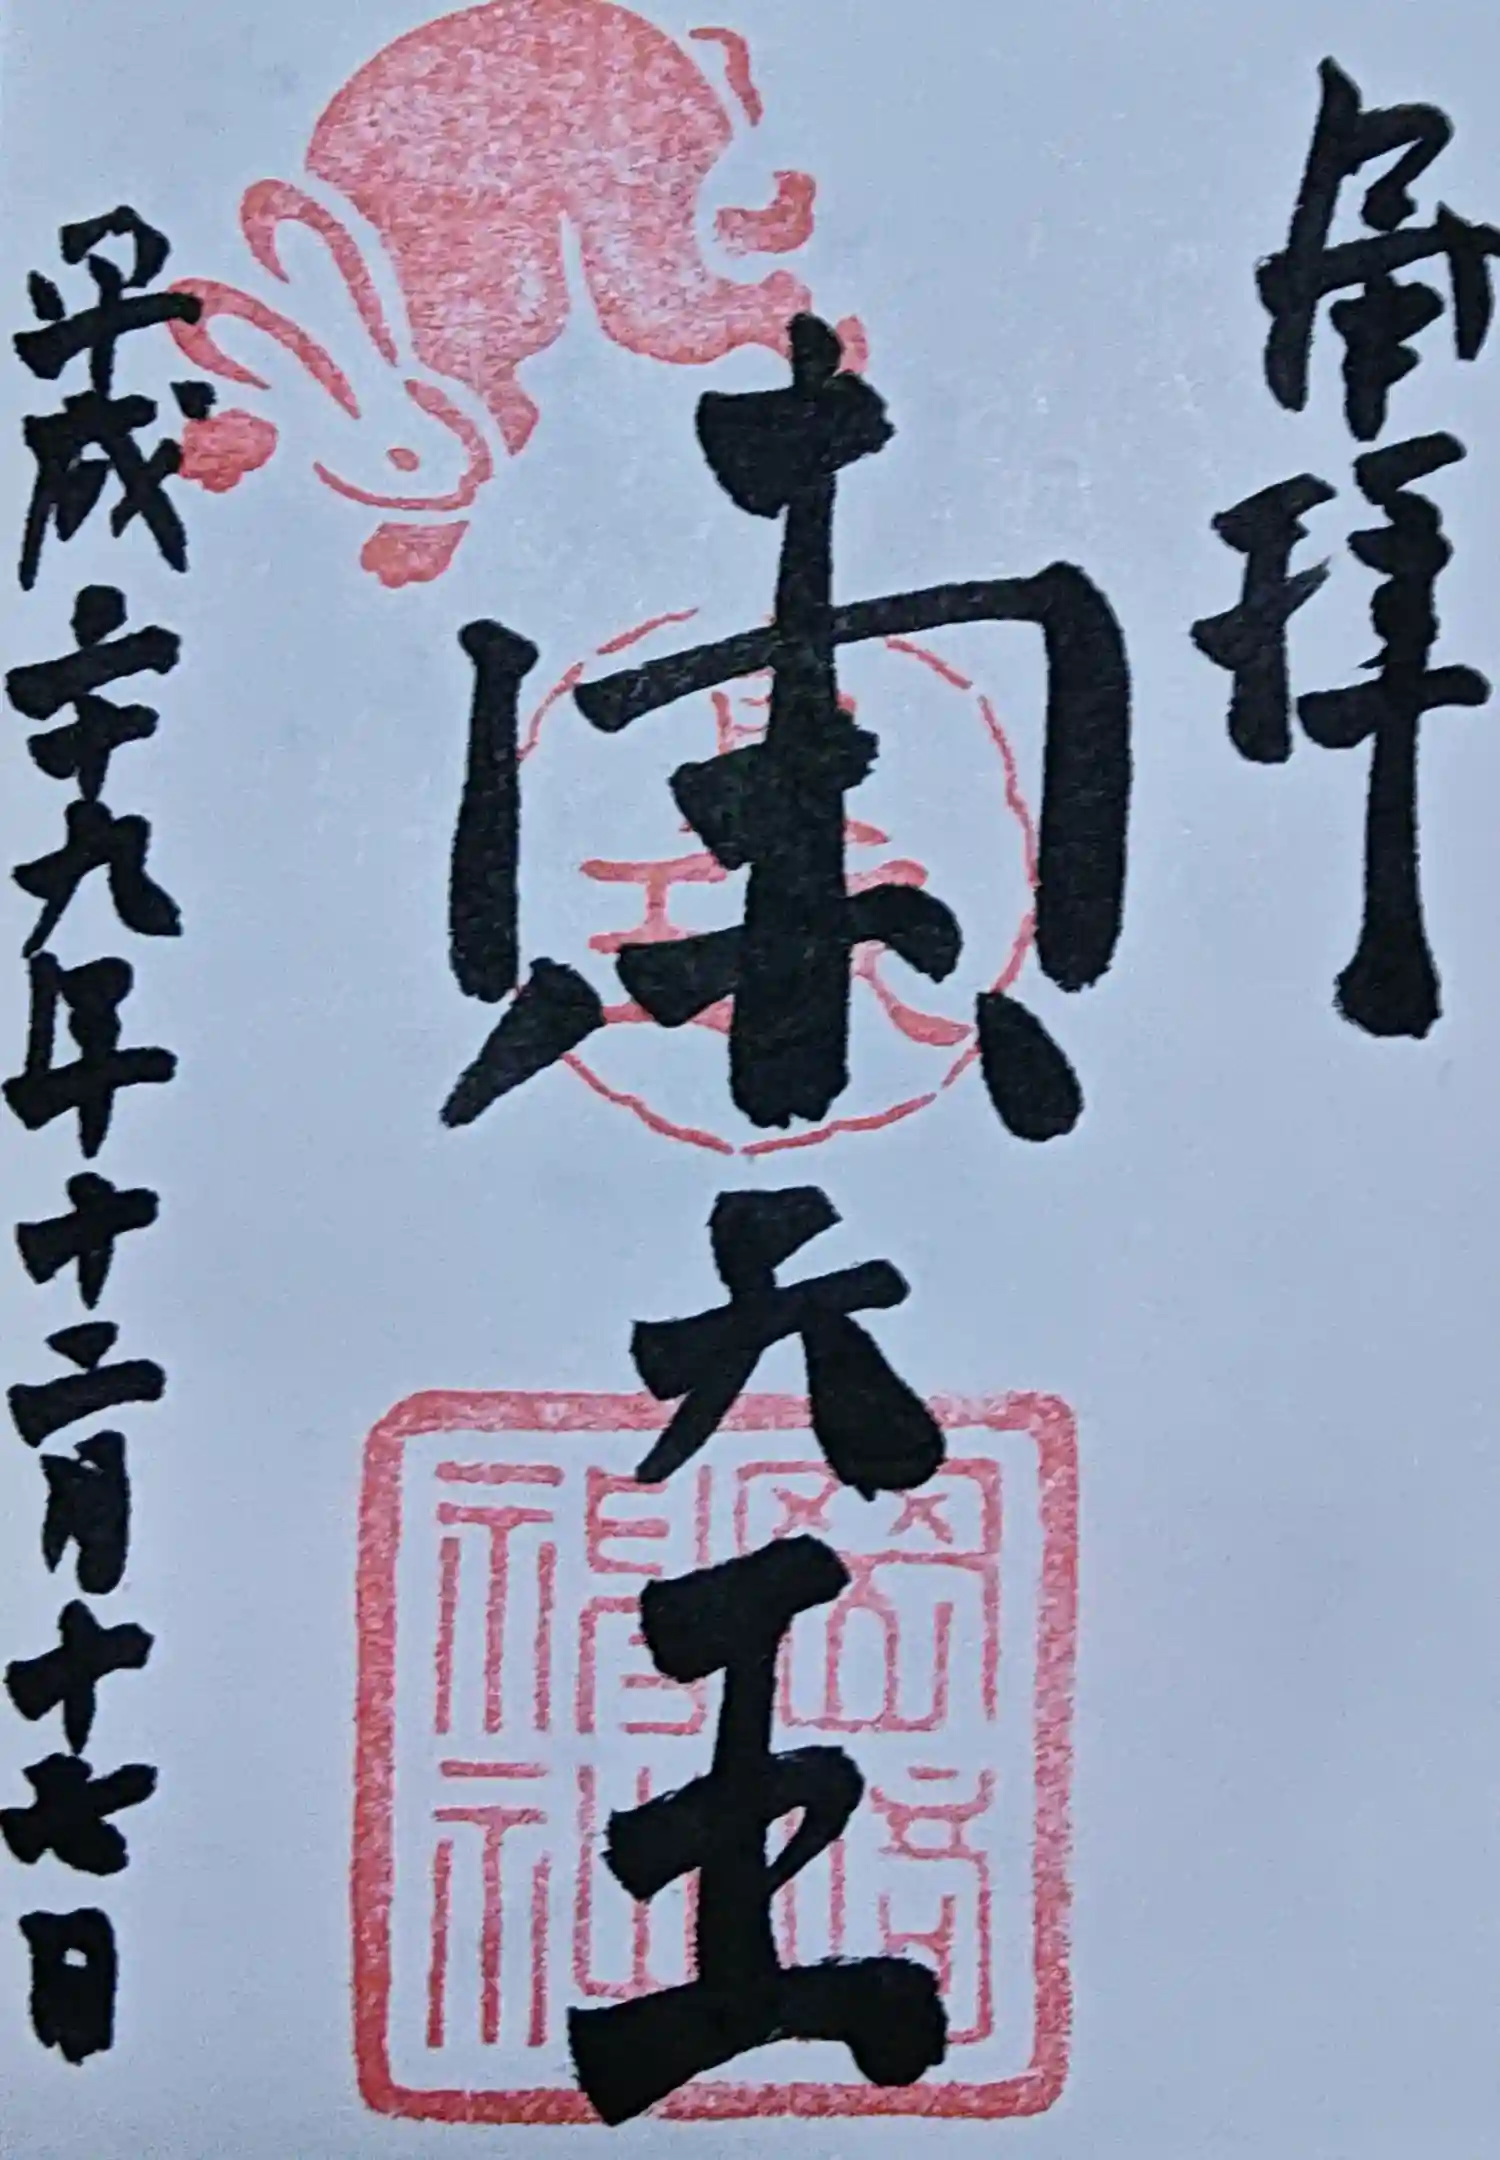 拝
東天王
岡崎神社
平成二十九年十二月十七日